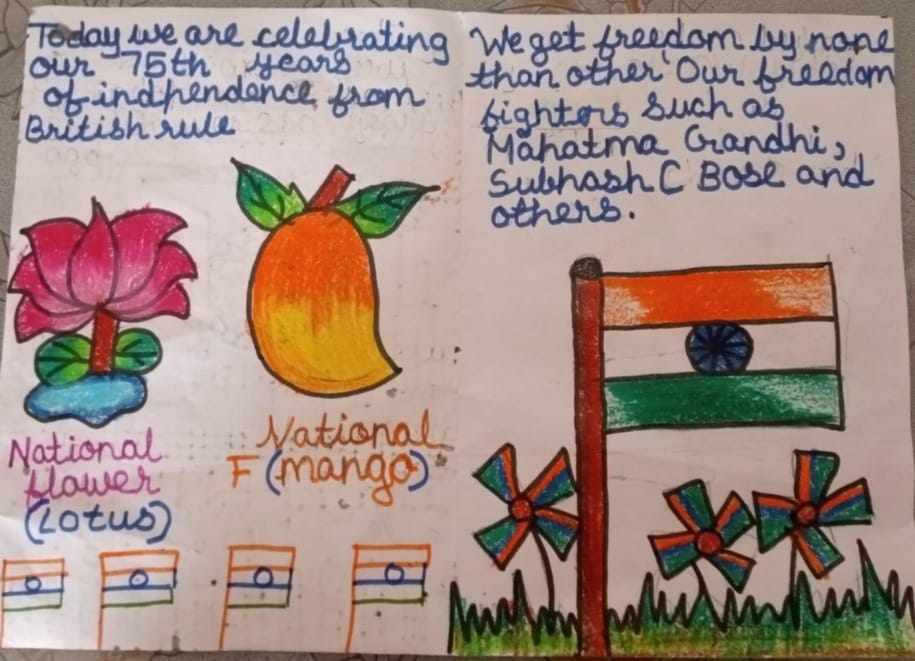 Today we are celebrating
our 75th years
of indpendence from
British rule
National
flower
(Lotus)
National
F (mango)
We get freedom by none
than other Our freedom
fighters such as
Mahatma Grandhi,
Subhash C Bose and
others.